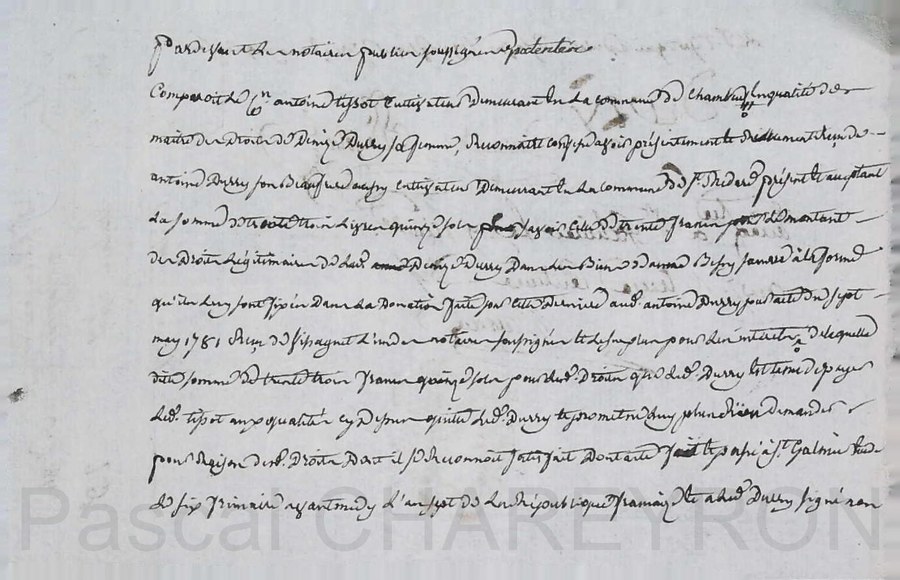 pardevant les notaires publics soussignés patentés
Comparoit le Cn antoine tissot Cultivateur demeurant En La commune de Chambeuf En qualité de
maitre des Droits de Denize Durry sa femme, Reconnait confesse avoir présentement Reçu de
antoine Durry son Beaufrere aussy Cultivateur Demeurant En La commune de St Medard présent et acceptant
La somme de trente trois Livres quinze sols savoir Celle de trente francs montant
des Droits Légitimaires de lad. Denize Durry Dans Les Biens d'anne sa mere à la forme
qu'ils Luy sont fixés Dans La Donation faite par Cette Derniere aud. antoine Durry par acte du sept
may 1781 Reçu de L'un des notaires soussignés et le surplus pour les interets de laquelle
dite somme de trente trois francs quinze sols pour lesd. Droits que led. Durry Est tenu de payer
Led. tissot aux qualités cy dessus quitte Led. Durry et promet ne Luy plus Rien demander
pour Raison desd. Droits Dont il se Reconnoit satisfait Dont acte fait et passé à St Galmier Etude
Le six frimaire avant midy L'an sept de La République française et a Led. Durry signé non
Pascal CHAREYRON